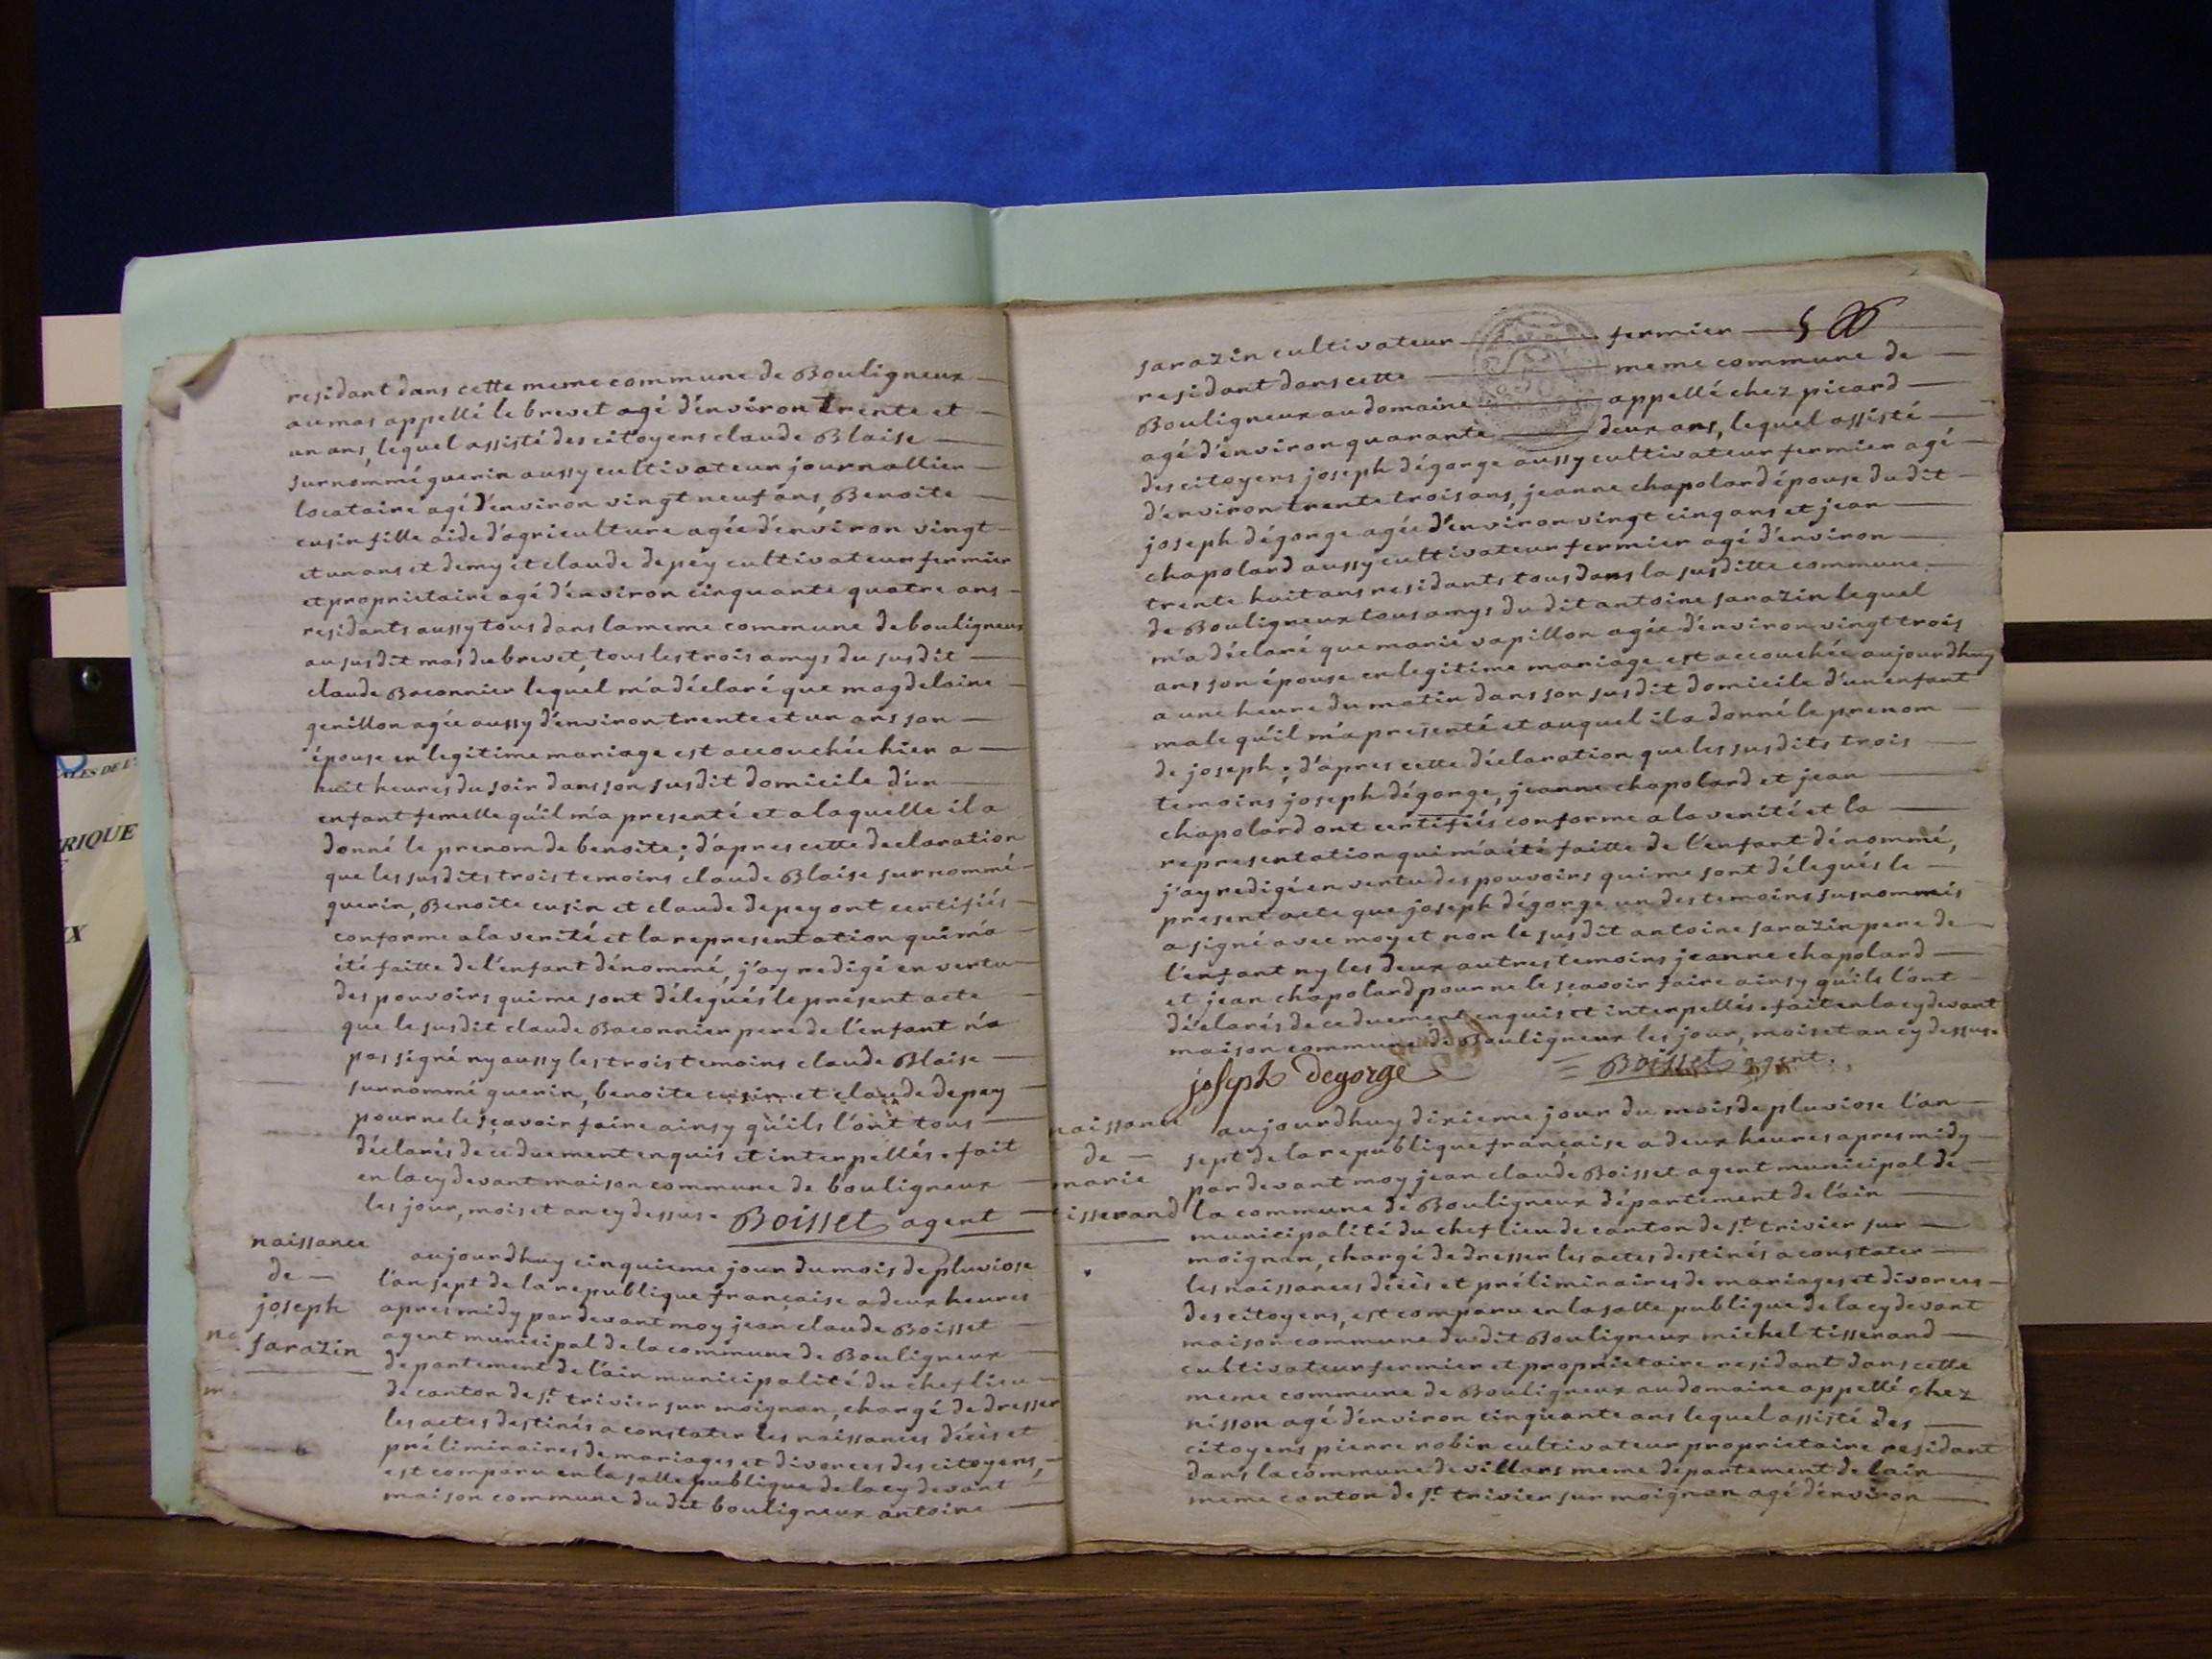 residant dans cette meme commune de Bouligneux
au mas appellé le brevet agé d'environ trente et
un ans, lequel assisté des citoyens claude Blaise
surnommé guerin aussy cultivateur journallier
locataire agé d'environ vingt neuf ans, Benoite
cusin fille aide d'agriculture agée d'environ vingt
et un ans et demy et claude depey cultivateur fermier
et proprietaire agé d'environ cinquante quatre ans
residants aussy tous dans la meme commune de bouligneux
au susdit mas du brevet, tous les trois amys du susdit
claude Baconnier lequel m'a déclaré que magdelaine
genillon agée aussy d'environ trente et un ans son
épouse en legitime mariage est accouchée hier a
huit heures du soir dans son susdit domicile d'un
enfant femelle qu'il m'a presenté et a laquelle il a
donné le prenom de benoite; d'apres cette declaration
que les susdits trois temoins claude Blaise surnommé
guerin, Benoite cusin et claude depey ont certifiés
conforme a la verité et la representation qui m'a
été faitte de l'enfant dénommé, j'ay redigé en vertu
des pouvoirs qui me sont délegués le présent acte
que le susdit claude Baconnier pere de l'enfant n'a
pas signé ny aussy les trois temoins claude Blaise
surnommé guerin, benoite cusin et claude depey
pour ne le sçavoir faire ainsy qu'ils l'ont tous
déclarés de ce duement enquis et interpellés. fait
en la cy devant maison commune de bouligneux
les jour, mois et an cy dessus. Boisset agent
naissance
de
joseph
sarazin
aujourdhuy cinquieme jour du mois de pluviose
l'an sept de la republique française a deux heures
apres midy par devant moy jean claude Boisset
agent municipal de la commune de Bouligneux
departement de l'ain municipalité du chef lieu
de canton de st trivier sur moignan, chargé de dresser
les actes destinés a constater les naissances décès et
préliminaires de mariages et divorces des citoyens,
est comparu en la salle publique de la cy devant
maison commune du dit bouligneux antoine
sarazin cultivateur fermier
residant dans cette meme commune de
Bouligneux au domaine appellé chez picard
agé d'environ quarante deux ans, lequel assisté
des citoyens joseph dégorge aussy cultivateur fermier agé
d'environ trente trois ans, jeanne chapolard épouse du dit
joseph dégorge agée d'environ vingt cinq ans et jean
chapolard aussy cultivateur fermier agé d'environ
trente huit ans residants tous dans la susditte commune
de Bouligneux tous amys du dit antoine sarazin lequel
m'a déclaré que marie vapillon agée d'environ vingt trois
ans son épouse en legitime mariage est accouchée aujourdhuy
a une heure du matin dans son susdit domicile d'un enfant
male qu'il m'a presenté et auquel il a donné le prenom
de joseph; d'apres cette déclaration que les susdits trois
temoins joseph dégorge, jeanne chapolard et jean
chapolard ont certifiés conforme a la verité et la
representation qui m'a été faitte de l'enfant dénommé,
j'ay redigé en vertu des pouvoirs qui me sont délegués le
present acte que joseph dégorge un des temoins susnommés
a signé avec moy et non le susdit antoine sarazin pere de
l'enfant ny les deux autres temoins jeanne chapolard
et jean chapolard pour ne le sçavoir faire ainsy qu'ils l'ont
déclarés de ce duement enquis et interpellés. fait en la cy devant
maison commune de Bouligneux les jour, mois et an cy dessus.
joseph degorge Boisset agent.
naissance
de
marie
tisserand
aujourdhuy dixieme jour du mois de pluviose l'an
sept de la republique française a deux heures apres midy
par devant moy jean claude Boisset agent municipal de
la commune de Bouligneux département de l'ain
municipalité du chef lieu de canton de st trivier sur
moignan, chargé de dresser les actes destinés a constater
les naissances décès et préliminaires de mariages et divorces
des citoyens, est comparu en la salle publique de la cy devant
maison commune du dit Bouligneux michel tisserand
cultivateur fermier et proprietaire residant dans cette
meme commune de Bouligneux au domaine appellé chez
nisson agé d'environ cinquante ans lequel assisté des
citoyens pierre robin cultivateur proprietaire residant
dans la commune de villars meme departement de l'ain
meme canton de st trivier sur moignan agé d'environ
RIQUE